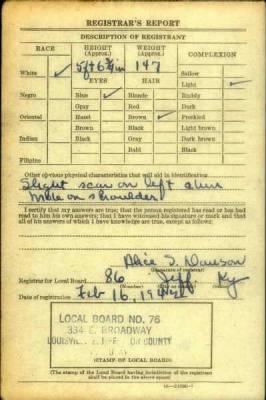 REGISTRAR'S REPORT
DESCRIPTION OF REGISTRANT
RACE HEIGHT (Approx.) WEIGHT (Approx.) COMPLEXION
5ft 6¾in 147
White ✓ EYES HAIR Sallow
Light ✓
Negro Blue ✓ Blonde Ruddy
Gray Red Dark
Oriental Hazel Brown ✓ Freckled
Brown Black Light brown
Indian Black Gray Dark brown
Bald Black
Filipino
Other obvious physical characteristics that will aid in identification
Slight scar on left
Mole on shoulder
I certify that my answers are true; that the person registered has read or has had read to him his own answers; that I have witnessed his signature or mark and that all of his answers of which I have knowledge are true, except as follows:
Alice S. Dawson
(Signature of registrar)
Registrar for Local Board 86 Jeff. Ky
Date of registration Feb 16, 1942
LOCAL BOARD NO. 76
334 E. BROADWAY
LOUISVILLE
COUNTY
(STAMP OF LOCAL BOARD)
(The stamp of the Local Board having jurisdiction of the registrant shall be placed in the above space)